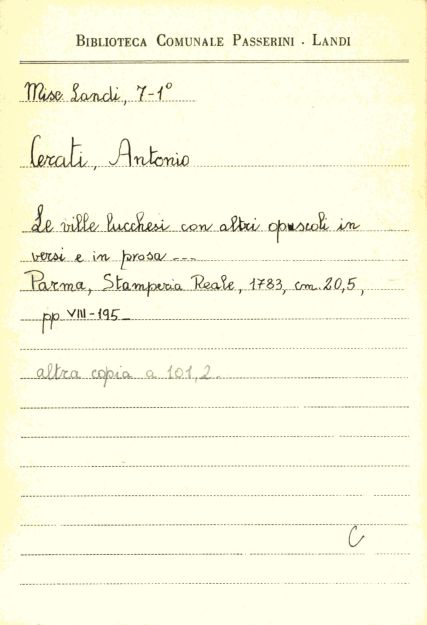 BIBLIOTECA COMUNALE PASSERINI - LANDI
Misc Landi, 7-1°
Cerati, Antonio
Le ville lucchesi con altri opuscoli in
versi e in prosa ---
Parma, Stamperia Reale, 1783, cm. 20,5,
pp. VIII-195_
altra copia a 101,2.
C